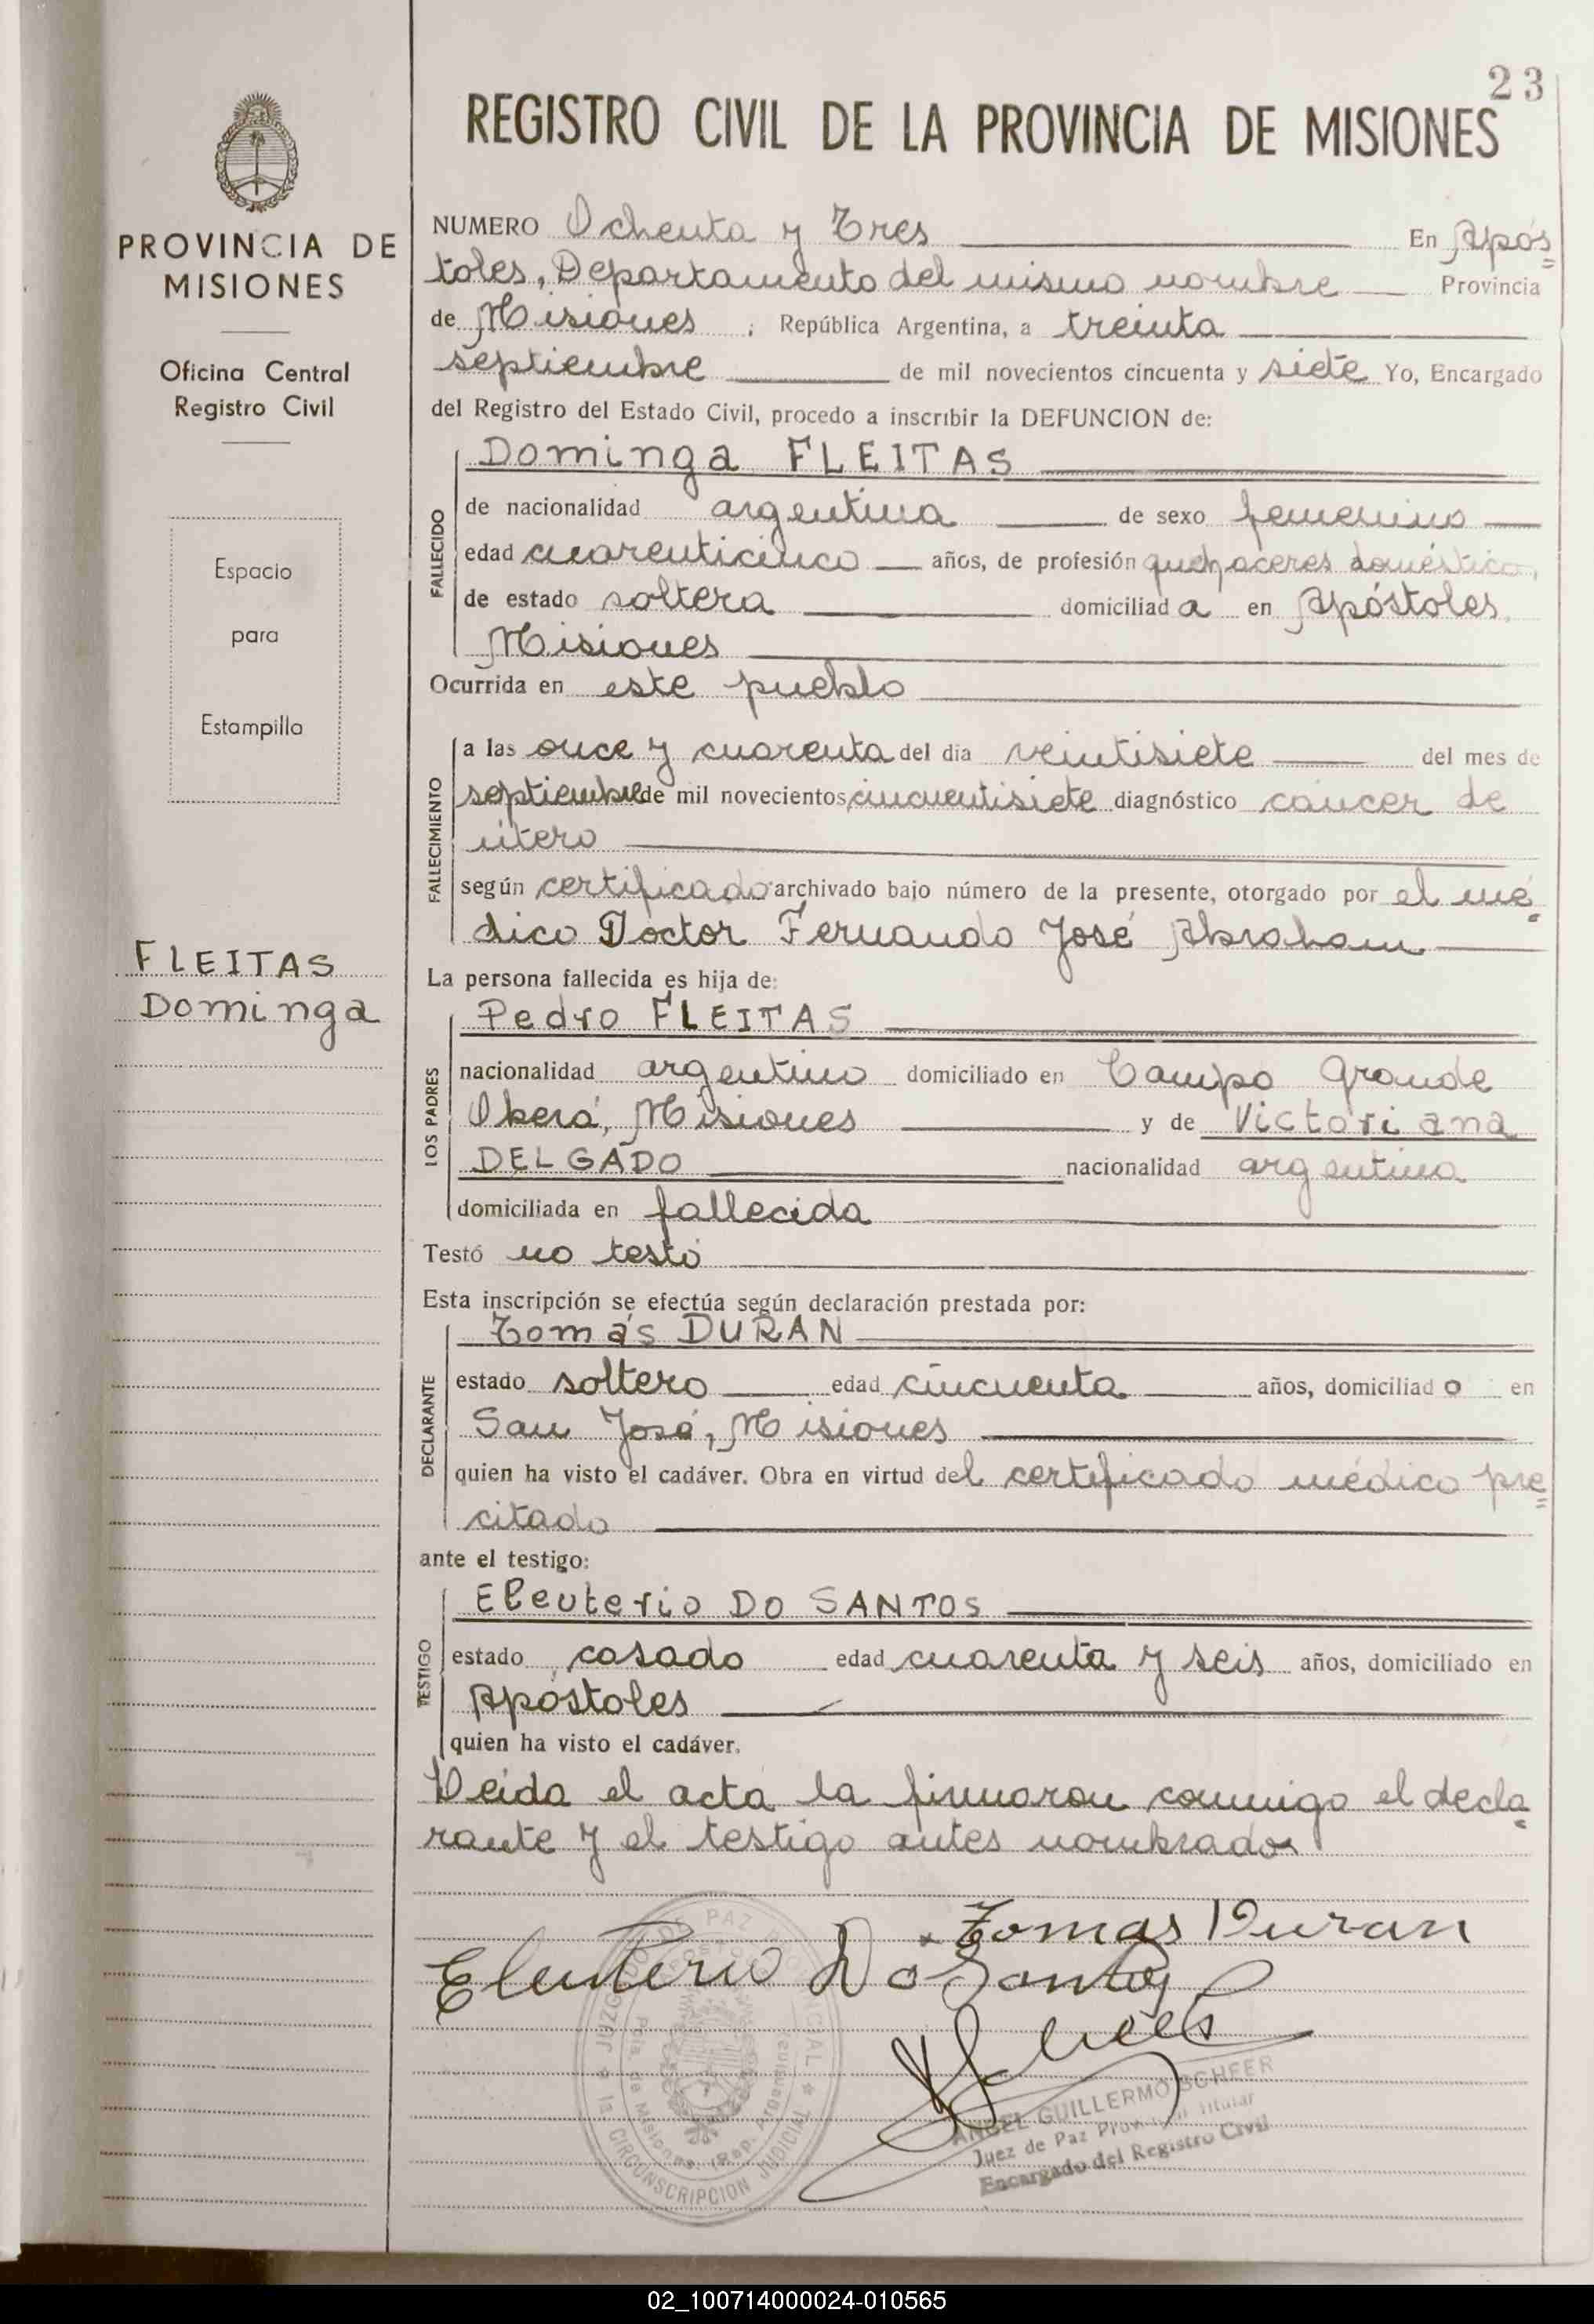 23
REGISTRO CIVIL DE LA PROVINCIA DE MISIONES
PROVINCIA DE
MISIONES
Oficina Central
Registro Civil
Espacio
para
Estampilla
FLEITAS
Dominga
NUMERO Ochenta y Tres En Após=
toles, Departamento del mismo nombre Provincia
de Misiones, República Argentina, a treinta
septiembre de mil novecientos cincuenta y siete Yo, Encargado
del Registro del Estado Civil, procedo a inscribir la DEFUNCION de:
FALLECIDO
Dominga FLEITAS
de nacionalidad argentina de sexo femenino
edad cuarenticinco años, de profesión quehaceres domésticos,
de estado soltera domiciliada en Apóstoles,
Misiones
Ocurrida en este pueblo
FALLECIMIENTO
a las once y cuarenta del dia veintisiete del mes de
septiembre de mil novecientos cincuentisiete diagnóstico cáncer de
útero
según certificado archivado bajo número de la presente, otorgado por el mé=
dico Doctor Fernando José Abraham
La persona fallecida es hija de:
LOS PADRES
Pedro FLEITAS
nacionalidad argentino domiciliado en Campo Grande
Oberá, Misiones y de Victoriana
DELGADO nacionalidad argentina
domiciliada en fallecida
Testó no testó
Esta inscripción se efectúa según declaración prestada por:
DECLARANTE
Tomás DURAN
estado soltero edad cincuenta años, domiciliado en
San José, Misiones
quien ha visto el cadáver. Obra en virtud del certificado médico pre=
citado
ante el testigo:
TESTIGO
Eleuterio DO SANTOS
estado casado edad cuarenta y seis años, domiciliado en
Apóstoles
quien ha visto el cadáver.
Leida el acta la firmaron conmigo el decla=
rante y el testigo antes nombrados
Tomas Duran
Eleuterio Do Santos
JUZGADO DE PAZ PROVINCIAL
1a. CIRCUNSCRIPCION JUDICIAL
APOSTOLES
Pcia. de Misiones (Rep. Argentina)
ANGEL GUILLERMO SCHEER
Juez de Paz Provincial Titular
Encargado del Registro Civil
02_100714000024-010565